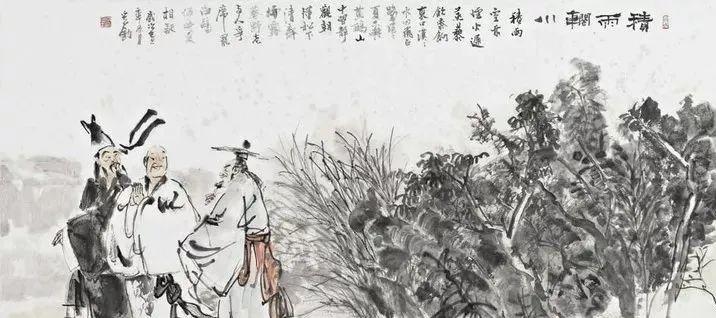 積雨輞川
積雨
空林
煙火遲
蒸藜
炊黍餉
東菑漠漠
水田飛白
鷺陰陰
夏木囀
黃鸝山
中習靜
觀朝
槿松下
清齋
折露
葵野老
與人爭
席罷
何事更
相疑